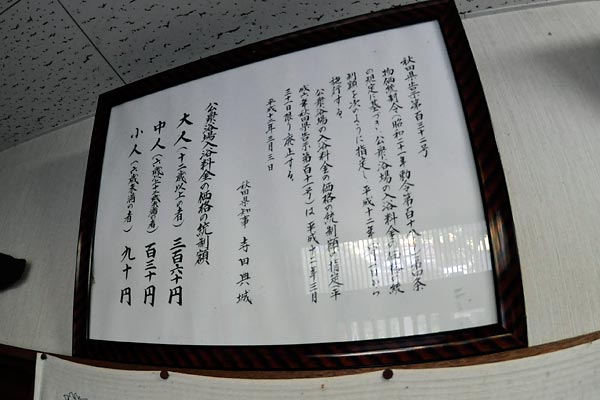 秋田県告示第百三十二号
物価統制令(昭和二十一年勅令第百十八号)第四条
の規定に基づき、公衆浴場の入浴料金の価格の統
制額を次のように指定し、平成十二年四月一日から
施行する。
公衆浴場の入浴料金の価格の統制額の指定(平
成年秋田県告示第百十一号)は、平成十二年三月
三十一日限り廃止する。
平成十二年三月三日
秋田県知事 寺田典城
公衆浴場入浴料金の価格の統制額
大人(十二歳以上の者) 三百六十円
中人(六歳以上十二歳未満の者) 百三十円
小人(六歳未満の者) 九十円